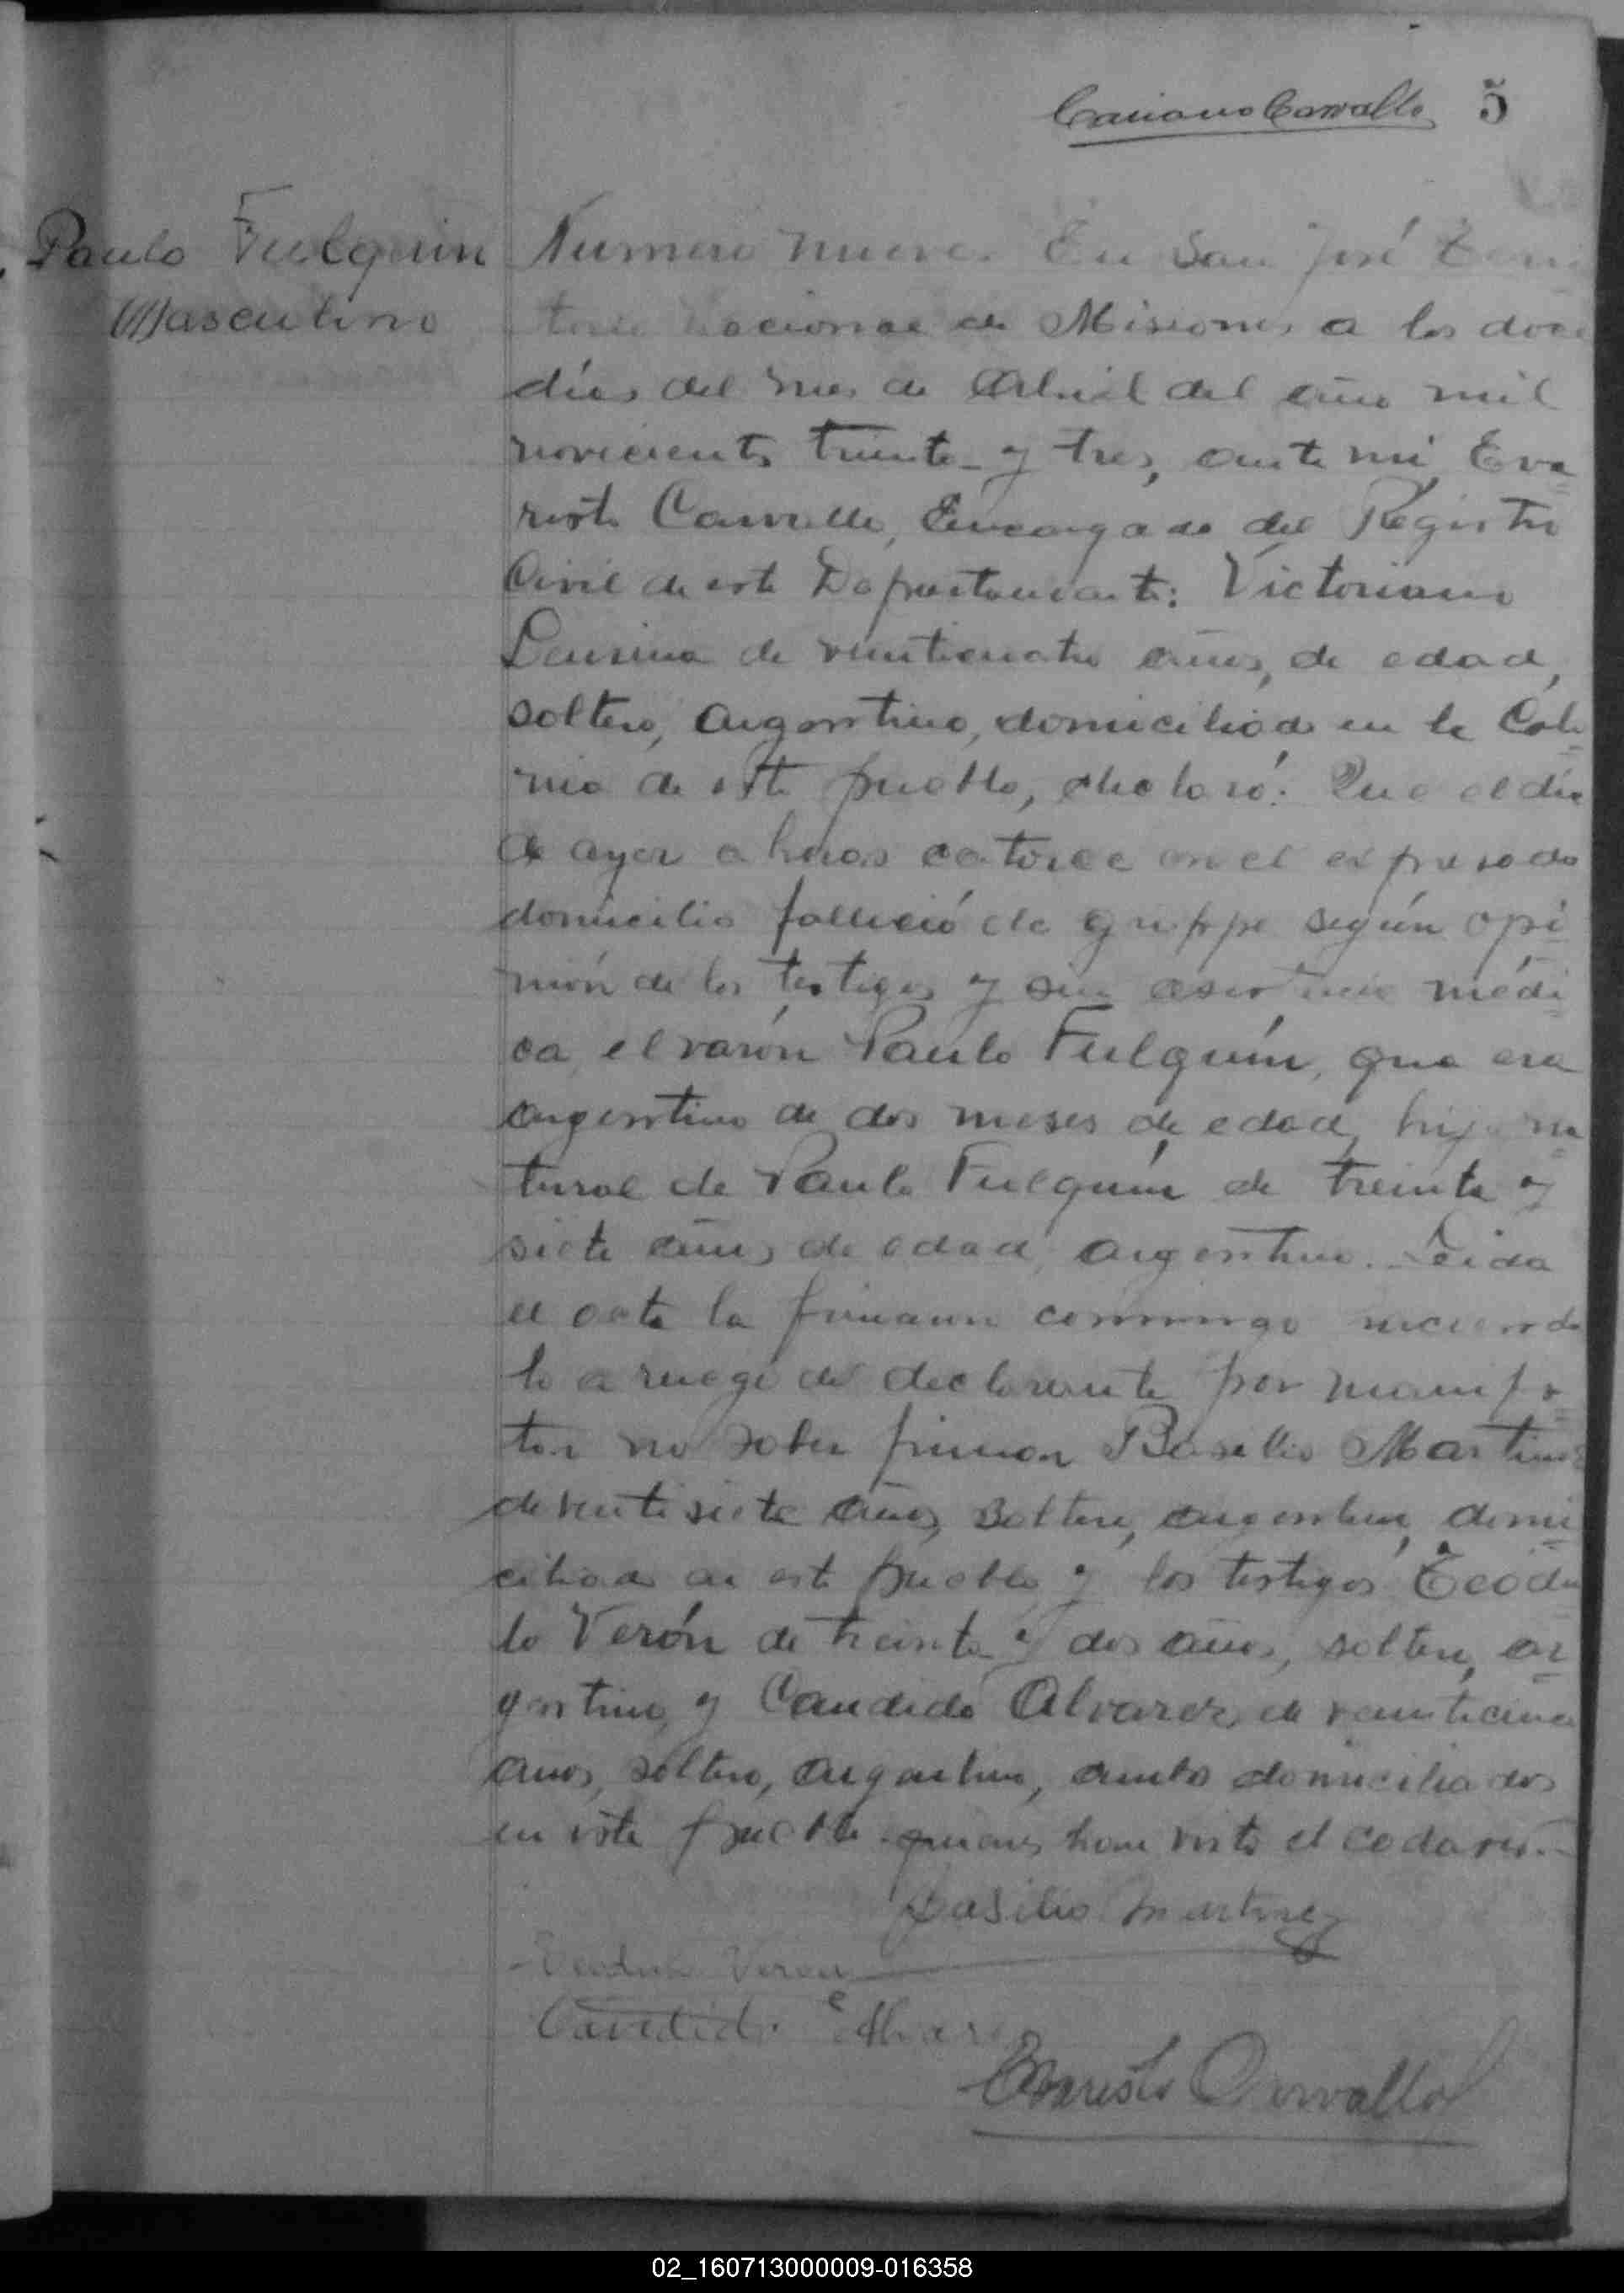 Casiano Carvallo 5
Paulo Fulquin
Masculino
Numero nueve. En San José Terri
torio nacional de Misiones a los doce
días del mes de Abril del año mil
novecientos treinta y tres, ante mi Eva
risto Carvallo, Encargado del Registro
Civil de este Departamento: Victoriano
de veinticuatro años, de edad,
soltero, argentino, domiciliado en la Colo
nia de este pueblo, declaró: Que el día
de ayer a horas catorce en el expresado
domicilio falleció de grippe según opi
nión de los testigos y sin asistencia médi
ca, el varón Paulo Fulquín, que era
argentino de dos meses de edad, hijo na
tural de Paula Fulquín de treinta y
siete años de edad, argentina. Leida
el acta la firmaron conmigo haciendo
lo a ruego del declarante por manifes
tar no saber firmar Basilio Martinez
de veintisiete años, soltero, argentino, domi
ciliado en este pueblo y los testigos Teodu
lo Verón de treinta y dos años, soltero, ar
gentino, y Candido Alvarez, de veinticinco
años, soltero, argentino, ambos domiciliados
en este pueblo quienes han visto el cadaver.
Basilio Martinez
Teodulo Veron
Candido Alvarez
Evaristo Carvallo
02_160713000009-016358